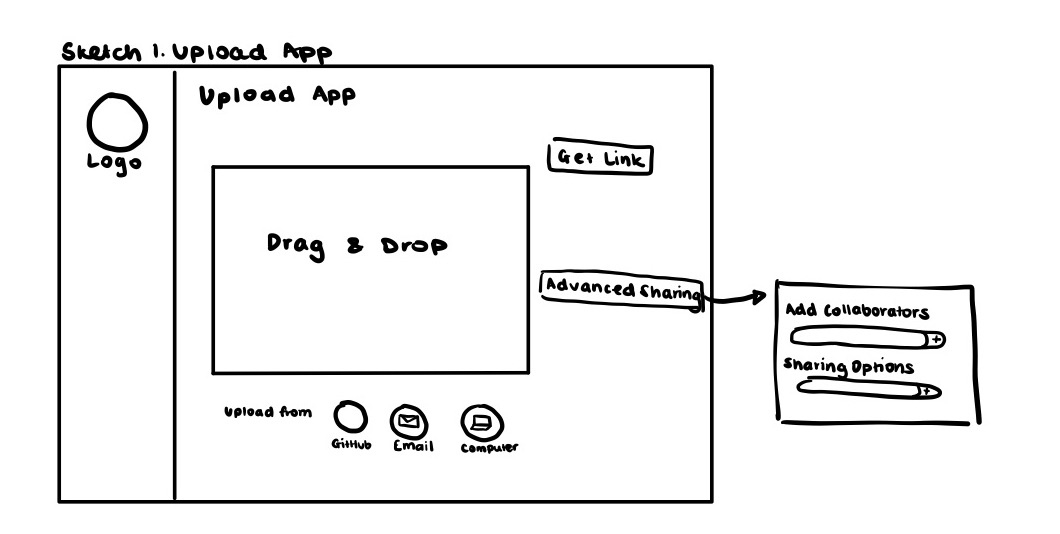 Sketch 1. Upload App
Upload App
Logo
Get Link
Drag & Drop
Advanced Sharing
Add Collaborators
+
Sharing Options
+
Upload from
GitHub
Email
Computer